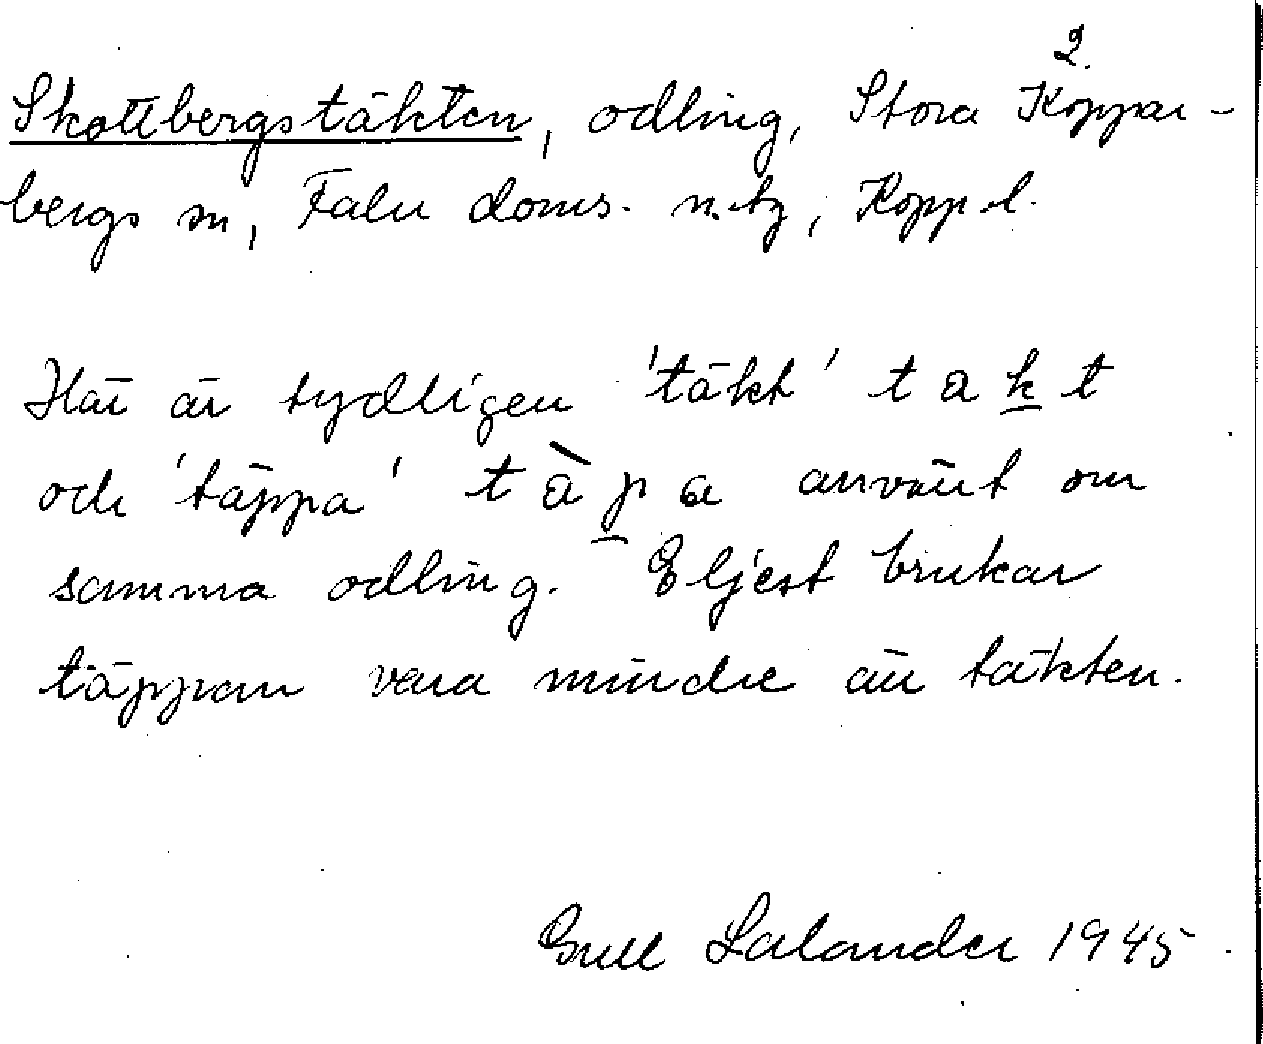 2.
Skottbergstäkten, odling, Stora Koppar-
bergs sn, Falu doms. n. tg, Kopp. l.
Här är tydligen 'täkt' t a k t
och 'täppa' t à p a använt om
samma odling. Eljest brukar
täppan vara mindre än täkten.
Gull Lalander 1945